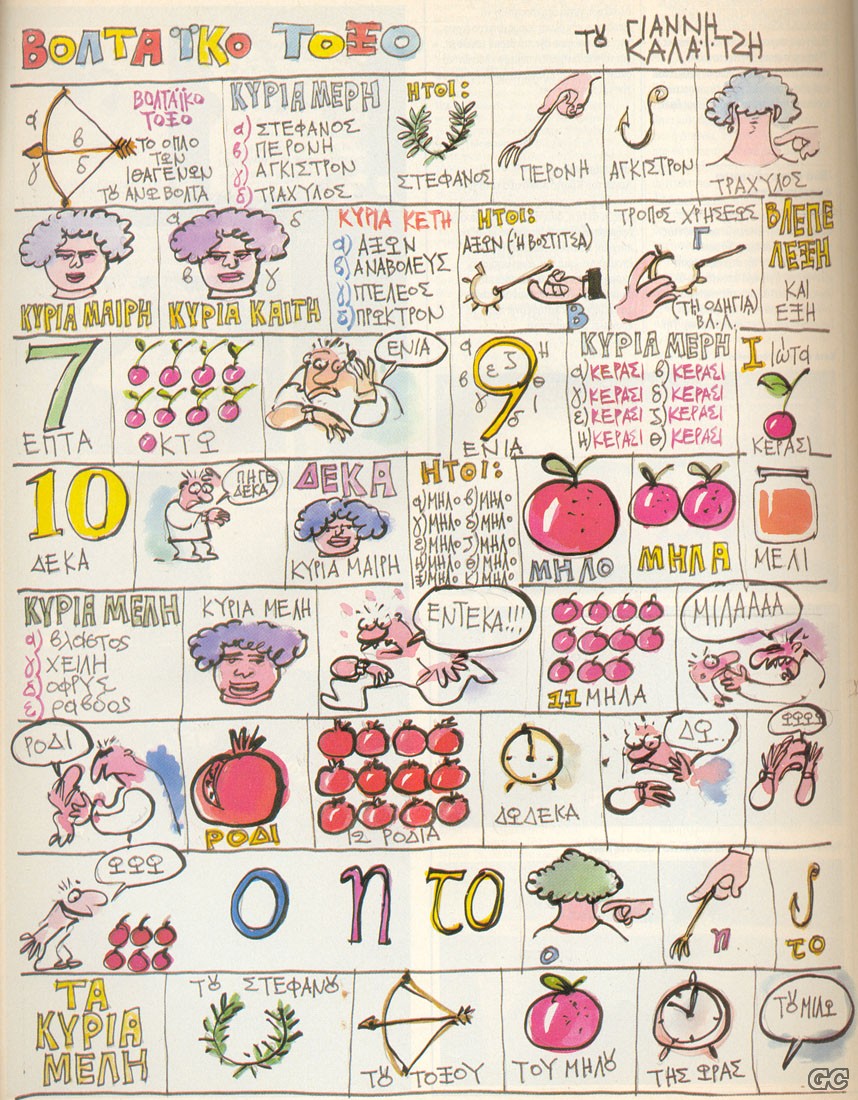 ΒΟΛΤΑΪΚΟ ΤΟΞΟ
ΤȢ ΓΙΑΝΝΗ
ΚΑΛΑΪΤΖΗ
α
β
γ
δ
ΒΟΛΤΑΪΚΟ
ΤΟΞΟ
ΤΟ ΟΠΛΟ
ΤΩΝ
ΙΘΑΓΕΝΩΝ
ΤȢ ΑΝΩ ΒΟΛΤΑ
ΚΥΡΙΑ ΜΕΡΗ
α) ΣΤΕΦΑΝΟΣ
β) ΠΕΡΟΝΗ
γ) ΑΓΚΙΣΤΡΟΝ
δ) ΤΡΑΧΥΛΟΣ
ΗΤΟΙ:
ΣΤΕΦΑΝΟΣ
ΠΕΡΟΝΗ
ΑΓΚΙΣΤΡΟΝ
ΤΡΑΧΥΛΟΣ
ΚΥΡΙΑ ΜΑΙΡΗ
α
δ
β
γ
ΚΥΡΙΑ ΚΑΙΤΗ
ΚΥΡΙΑ ΚΕΤΗ
α) ΑΞΩΝ
β) ΑΝΑΒΟΛΕΥΣ
γ) ΠΕΛΕΟΣ
δ) ΠΡΩΚΤΡΟΝ
ΗΤΟΙ:
ΑΞΩΝ (Ή ΒΟΣΤΙΤΣΑ)
Β
ΤΡΟΠΟΣ ΧΡΗΣΕΩΣ
Γ
(ΤΗ ΟΔΗΓΙΑ)
ΒΛ.Λ.
ΒΛΕΠΕ
ΛΕΞΗ
ΚΑΙ
ΕΞΗ
7
ΕΠΤΑ
ΟΚΤΩ
ΕΝΙΑ
9
α
β
γ
δ
ε
ζ
Η
θ
Ι
ΕΝΙΑ
ΚΥΡΙΑ ΜΕΡΗ
α) ΚΕΡΑΣΙ β) ΚΕΡΑΣΙ
γ) ΚΕΡΑΣΙ δ) ΚΕΡΑΣΙ
ε) ΚΕΡΑΣΙ ζ) ΚΕΡΑΣΙ
Η) ΚΕΡΑΣΙ θ) ΚΕΡΑΣΙ
Ι ΙΩΤΑ
ΚΕΡΑΣΙ
10
ΔΕΚΑ
ΠΗΓΕ
ΔΕΚΑ
ΔΕΚΑ
ΚΥΡΙΑ ΜΑΙΡΗ
ΗΤΟΙ:
α) ΜΗΛΟ β) ΜΗΛΟ
γ) ΜΗΛΟ δ) ΜΗΛΟ
ε) ΜΗΛΟ ζ) ΜΗΛΟ
Η) ΜΗΛΟ θ) ΜΗΛΟ
ΜΗΛΟ Κ) ΜΗΛΟ
ΜΗΛΟ
ΜΗΛΑ
ΜΕΛΙ
ΚΥΡΙΑ ΜΕΛΗ
α) βλαστος
γ) ΧΕΙΛΗ
δ) ΟΦΡΥΣ
ε) ραβδος
ΚΥΡΙΑ ΜΕΛΗ
ΕΝΤΕΚΑ!!!
11 ΜΗΛΑ
ΜΙΛΑΑΑΑ
ΡΟΔΙ
ΡΟΔΙ
12 ΡΟΔΙΑ
ΔΩΔΕΚΑ
ΔΩ..
ΩΩΩΩ
ΩΩΩ
ο
η
το
ο
η
το
ΤΑ
ΚΥΡΙΑ
ΜΕΛΗ
ΤȢ ΣΤΕΦΑΝȢ
ΤȢ ΤΟΞΟΥ
ΤΟΥ ΜΗΛȢ
ΤΗΣ ΩΡΑΣ
ΤȢ ΜΙΛΩ
GC